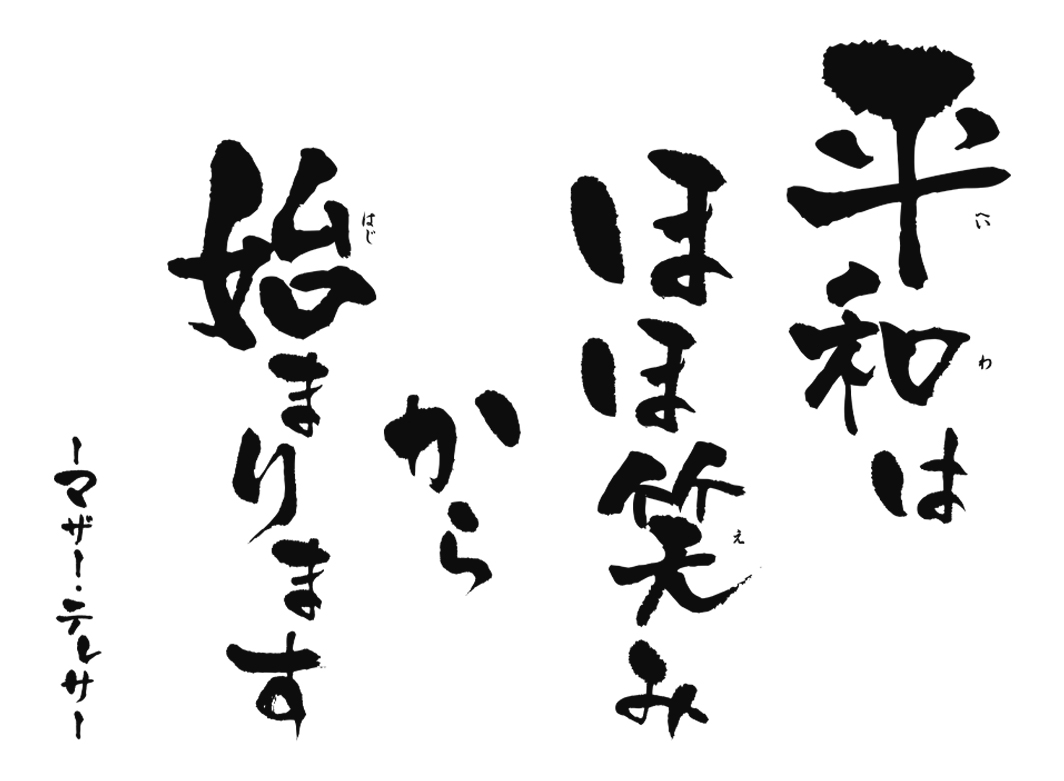 平和は
へいわ
ほほ笑み
え
から
始まります
はじ
ーマザー・テレサー